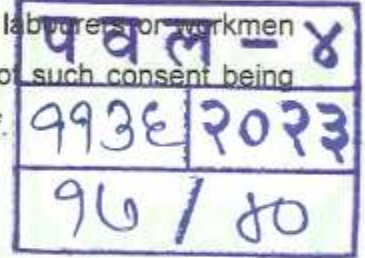 labourers or workmen
पवल - ४
of such consent being
११३६ २०२३
१७ / ४०